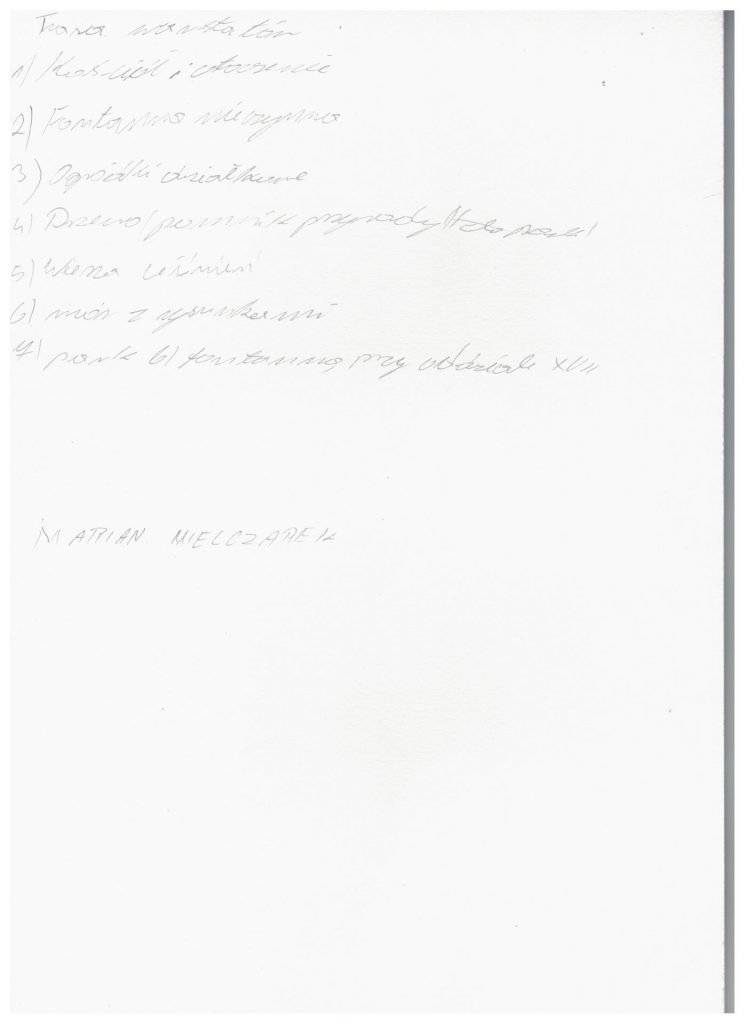 Trasa warsztatów
1) Kościół i otoczenie
2) Fontanna nieczynna
3) Ogródki działkowe
4) Drzewo/pomnik przyrody
5) Wieża ciśnień
6) mur z rysunkami
7) park b) fontanną przy oddziale XVII
MARIAN MIELCZAREK